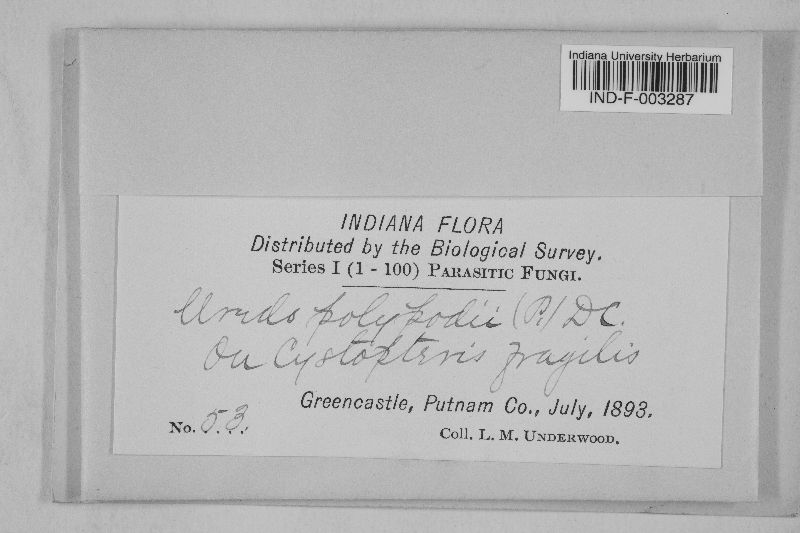 Indiana University Herbarium
IND-F-003287
INDIANA FLORA
Distributed by the Biological Survey.
Series I (1 - 100) PARASITIC FUNGI.
Uredo polypodii (P.) DC.
On Cystopteris fragilis
Greencastle, Putnam Co., July, 1893.
No. 53.
Coll. L. M. UNDERWOOD.